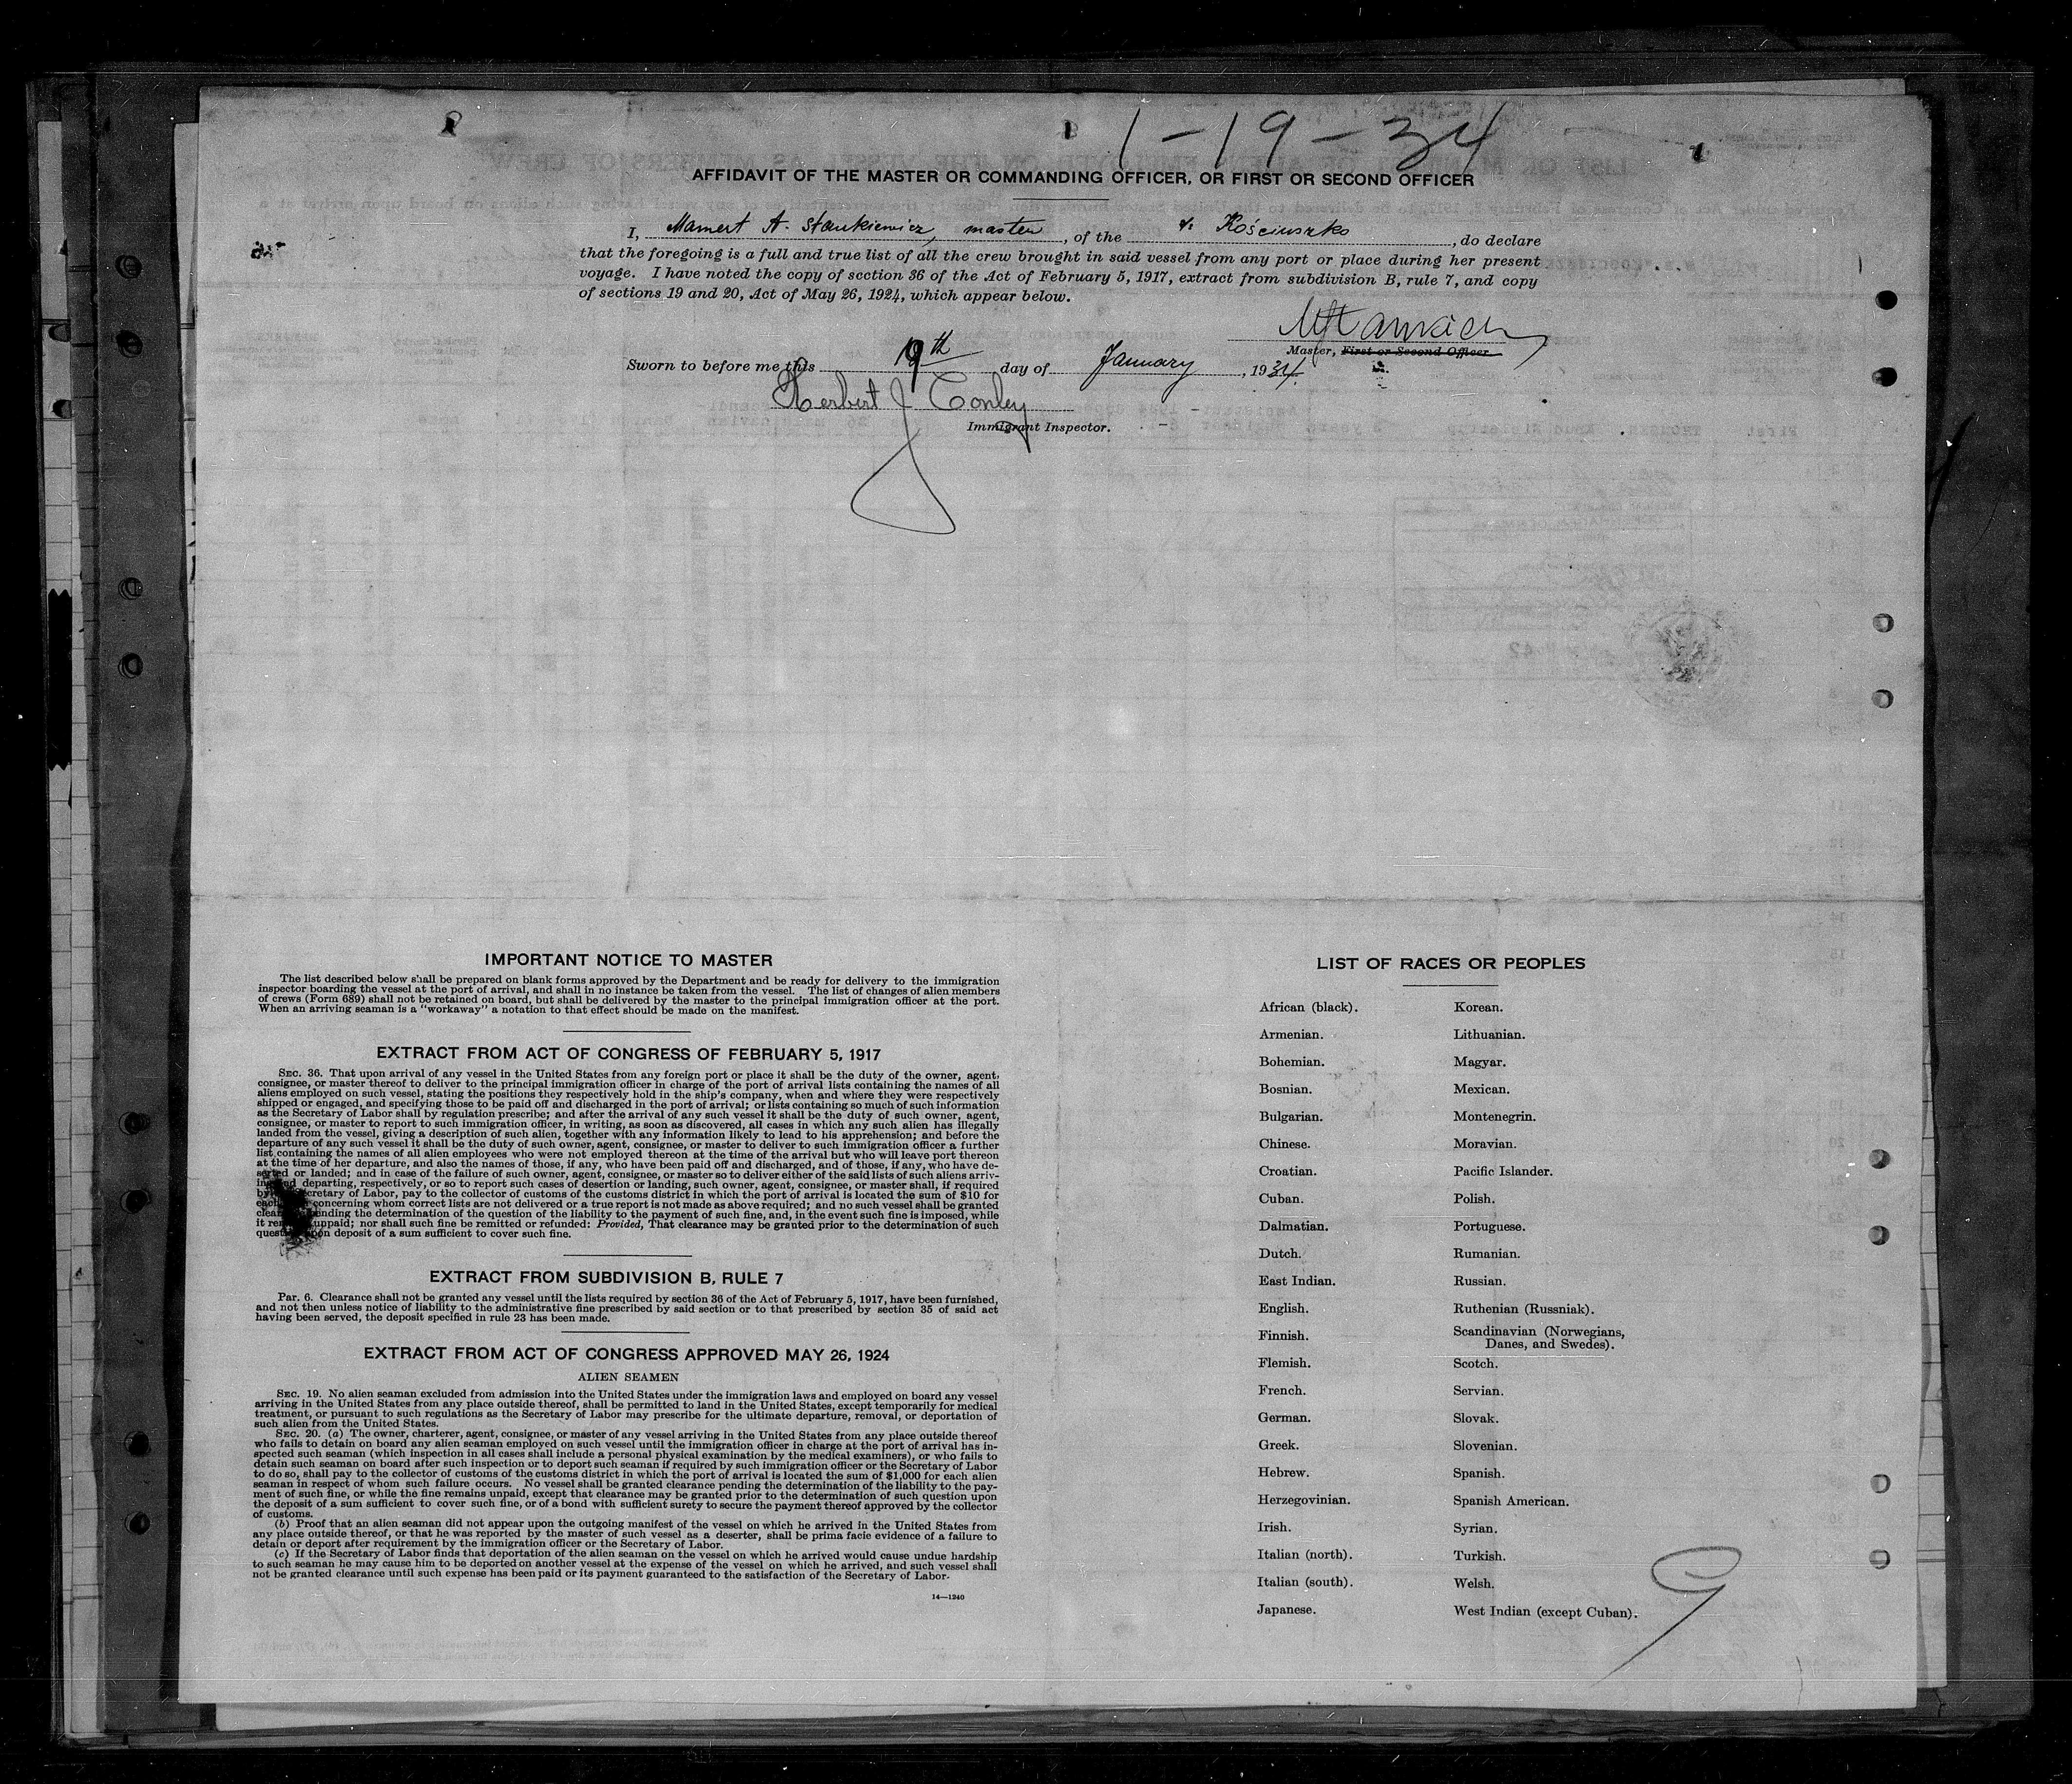 1-19-34
AFFIDAVIT OF THE MASTER OR COMMANDING OFFICER, OR FIRST OR SECOND OFFICER
I, Mamert A. Stankiewicz, master, of the s. Kościuszko, do declare
that the foregoing is a full and true list of all the crew brought in said vessel from any port or place during her present
voyage. I have noted the copy of section 36 of the Act of February 5, 1917, extract from subdivision B, rule 7, and copy
of sections 19 and 20, Act of May 26, 1924, which appear below.
Master, First or Second Officer.
Sworn to before me this 19th day of January, 1934.
Herbert J Conley
Immigrant Inspector.
IMPORTANT NOTICE TO MASTER
The list described below shall be prepared on blank forms approved by the Department and be ready for delivery to the immigration
inspector boarding the vessel at the port of arrival, and shall in no instance be taken from the vessel. The list of changes of alien members
of crews (Form 689) shall not be retained on board, but shall be delivered by the master to the principal immigration officer at the port.
When an arriving seaman is a "workaway" a notation to that effect should be made on the manifest.
EXTRACT FROM ACT OF CONGRESS OF FEBRUARY 5, 1917
SEC. 36. That upon arrival of any vessel in the United States from any foreign port or place it shall be the duty of the owner, agent,
consignee, or master thereof to deliver to the principal immigration officer in charge of the port of arrival lists containing the names of all
aliens employed on such vessel, stating the positions they respectively hold in the ship's company, when and where they were respectively
shipped or engaged, and specifying those to be paid off and discharged in the port of arrival; or lists containing so much of such information
as the Secretary of Labor shall by regulation prescribe; and after the arrival of any such vessel it shall be the duty of such owner, agent,
consignee, or master to report to such immigration officer, in writing, as soon as discovered, all cases in which any such alien has illegally
landed from the vessel, giving a description of such alien, together with any information likely to lead to his apprehension; and before the
departure of any such vessel it shall be the duty of such owner, agent, consignee, or master to deliver to such immigration officer a further
list containing the names of all alien employees who were not employed thereon at the time of the arrival but who will leave port thereon
at the time of her departure, and also the names of those, if any, who have been paid off and discharged, and of those, if any, who have de-
serted or landed; and in case of the failure of such owner, agent, consignee, or master so to deliver either of the said lists of such aliens arriv-
ing and departing, respectively, or so to report such cases of desertion or landing, such owner, agent, consignee, or master shall, if required
by Secretary of Labor, pay to the collector of customs of the customs district in which the port of arrival is located the sum of $10 for
each concerning whom correct lists are not delivered or a true report is not made as above required; and no such vessel shall be granted
clear pending the determination of the question of the liability to the payment of such fine, and, in the event such fine is imposed, while
it re unpaid; nor shall such fine be remitted or refunded: Provided, That clearance may be granted prior to the determination of such
quest upon deposit of a sum sufficient to cover such fine.
EXTRACT FROM SUBDIVISION B, RULE 7
PAR. 6. Clearance shall not be granted any vessel until the lists required by section 36 of the Act of February 5, 1917, have been furnished,
and not then unless notice of liability to the administrative fine prescribed by said section or to that prescribed by section 35 of said act
having been served, the deposit specified in rule 23 has been made.
EXTRACT FROM ACT OF CONGRESS APPROVED MAY 26, 1924
ALIEN SEAMEN
SEC. 19. No alien seaman excluded from admission into the United States under the immigration laws and employed on board any vessel
arriving in the United States from any place outside thereof, shall be permitted to land in the United States, except temporarily for medical
treatment, or pursuant to such regulations as the Secretary of Labor may prescribe for the ultimate departure, removal, or deportation of
such alien from the United States.
SEC. 20. (a) The owner, charterer, agent, consignee, or master of any vessel arriving in the United States from any place outside thereof
who fails to detain on board any alien seaman employed on such vessel until the immigration officer in charge at the port of arrival has in-
spected such seaman (which inspection in all cases shall include a personal physical examination by the medical examiners), or who fails to
detain such seaman on board after such inspection or to deport such seaman if required by such immigration officer or the Secretary of Labor
to do so, shall pay to the collector of customs of the customs district in which the port of arrival is located the sum of $1,000 for each alien
seaman in respect of whom such failure occurs. No vessel shall be granted clearance pending the determination of the liability to the pay-
ment of such fine, or while the fine remains unpaid, except that clearance may be granted prior to the determination of such question upon
the deposit of a sum sufficient to cover such fine, or of a bond with sufficient surety to secure the payment thereof approved by the collector
of customs.
(b) Proof that an alien seaman did not appear upon the outgoing manifest of the vessel on which he arrived in the United States from
any place outside thereof, or that he was reported by the master of such vessel as a deserter, shall be prima facie evidence of a failure to
detain or deport after requirement by the immigration officer or the Secretary of Labor.
(c) If the Secretary of Labor finds that deportation of the alien seaman on the vessel on which he arrived would cause undue hardship
to such seaman he may cause him to be deported on another vessel at the expense of the vessel on which he arrived, and such vessel shall
not be granted clearance until such expense has been paid or its payment guaranteed to the satisfaction of the Secretary of Labor.
14—1240
LIST OF RACES OR PEOPLES
African (black). Korean.
Armenian. Lithuanian.
Bohemian. Magyar.
Bosnian. Mexican.
Bulgarian. Montenegrin.
Chinese. Moravian.
Croatian. Pacific Islander.
Cuban. Polish.
Dalmatian. Portuguese.
Dutch. Rumanian.
East Indian. Russian.
English. Ruthenian (Russniak).
Finnish. Scandinavian (Norwegians,
Danes, and Swedes).
Flemish. Scotch.
French. Servian.
German. Slovak.
Greek. Slovenian.
Hebrew. Spanish.
Herzegovinian. Spanish American.
Irish. Syrian.
Italian (north). Turkish.
Italian (south). Welsh.
Japanese. West Indian (except Cuban).
9